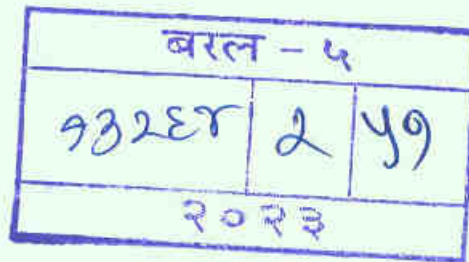 बरल - ५
१३२६४ २ ५१
२०२३